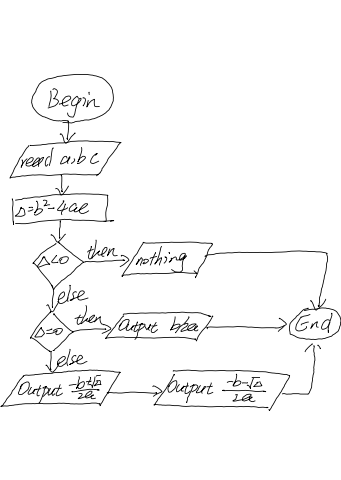 Begin
read a,b,c
Δ=b²-4ac
Δ<0
then
nothing
else
Δ=0
then
Output b/2a
End
else
Output (-b+√Δ)/2a
Output (-b-√Δ)/2a